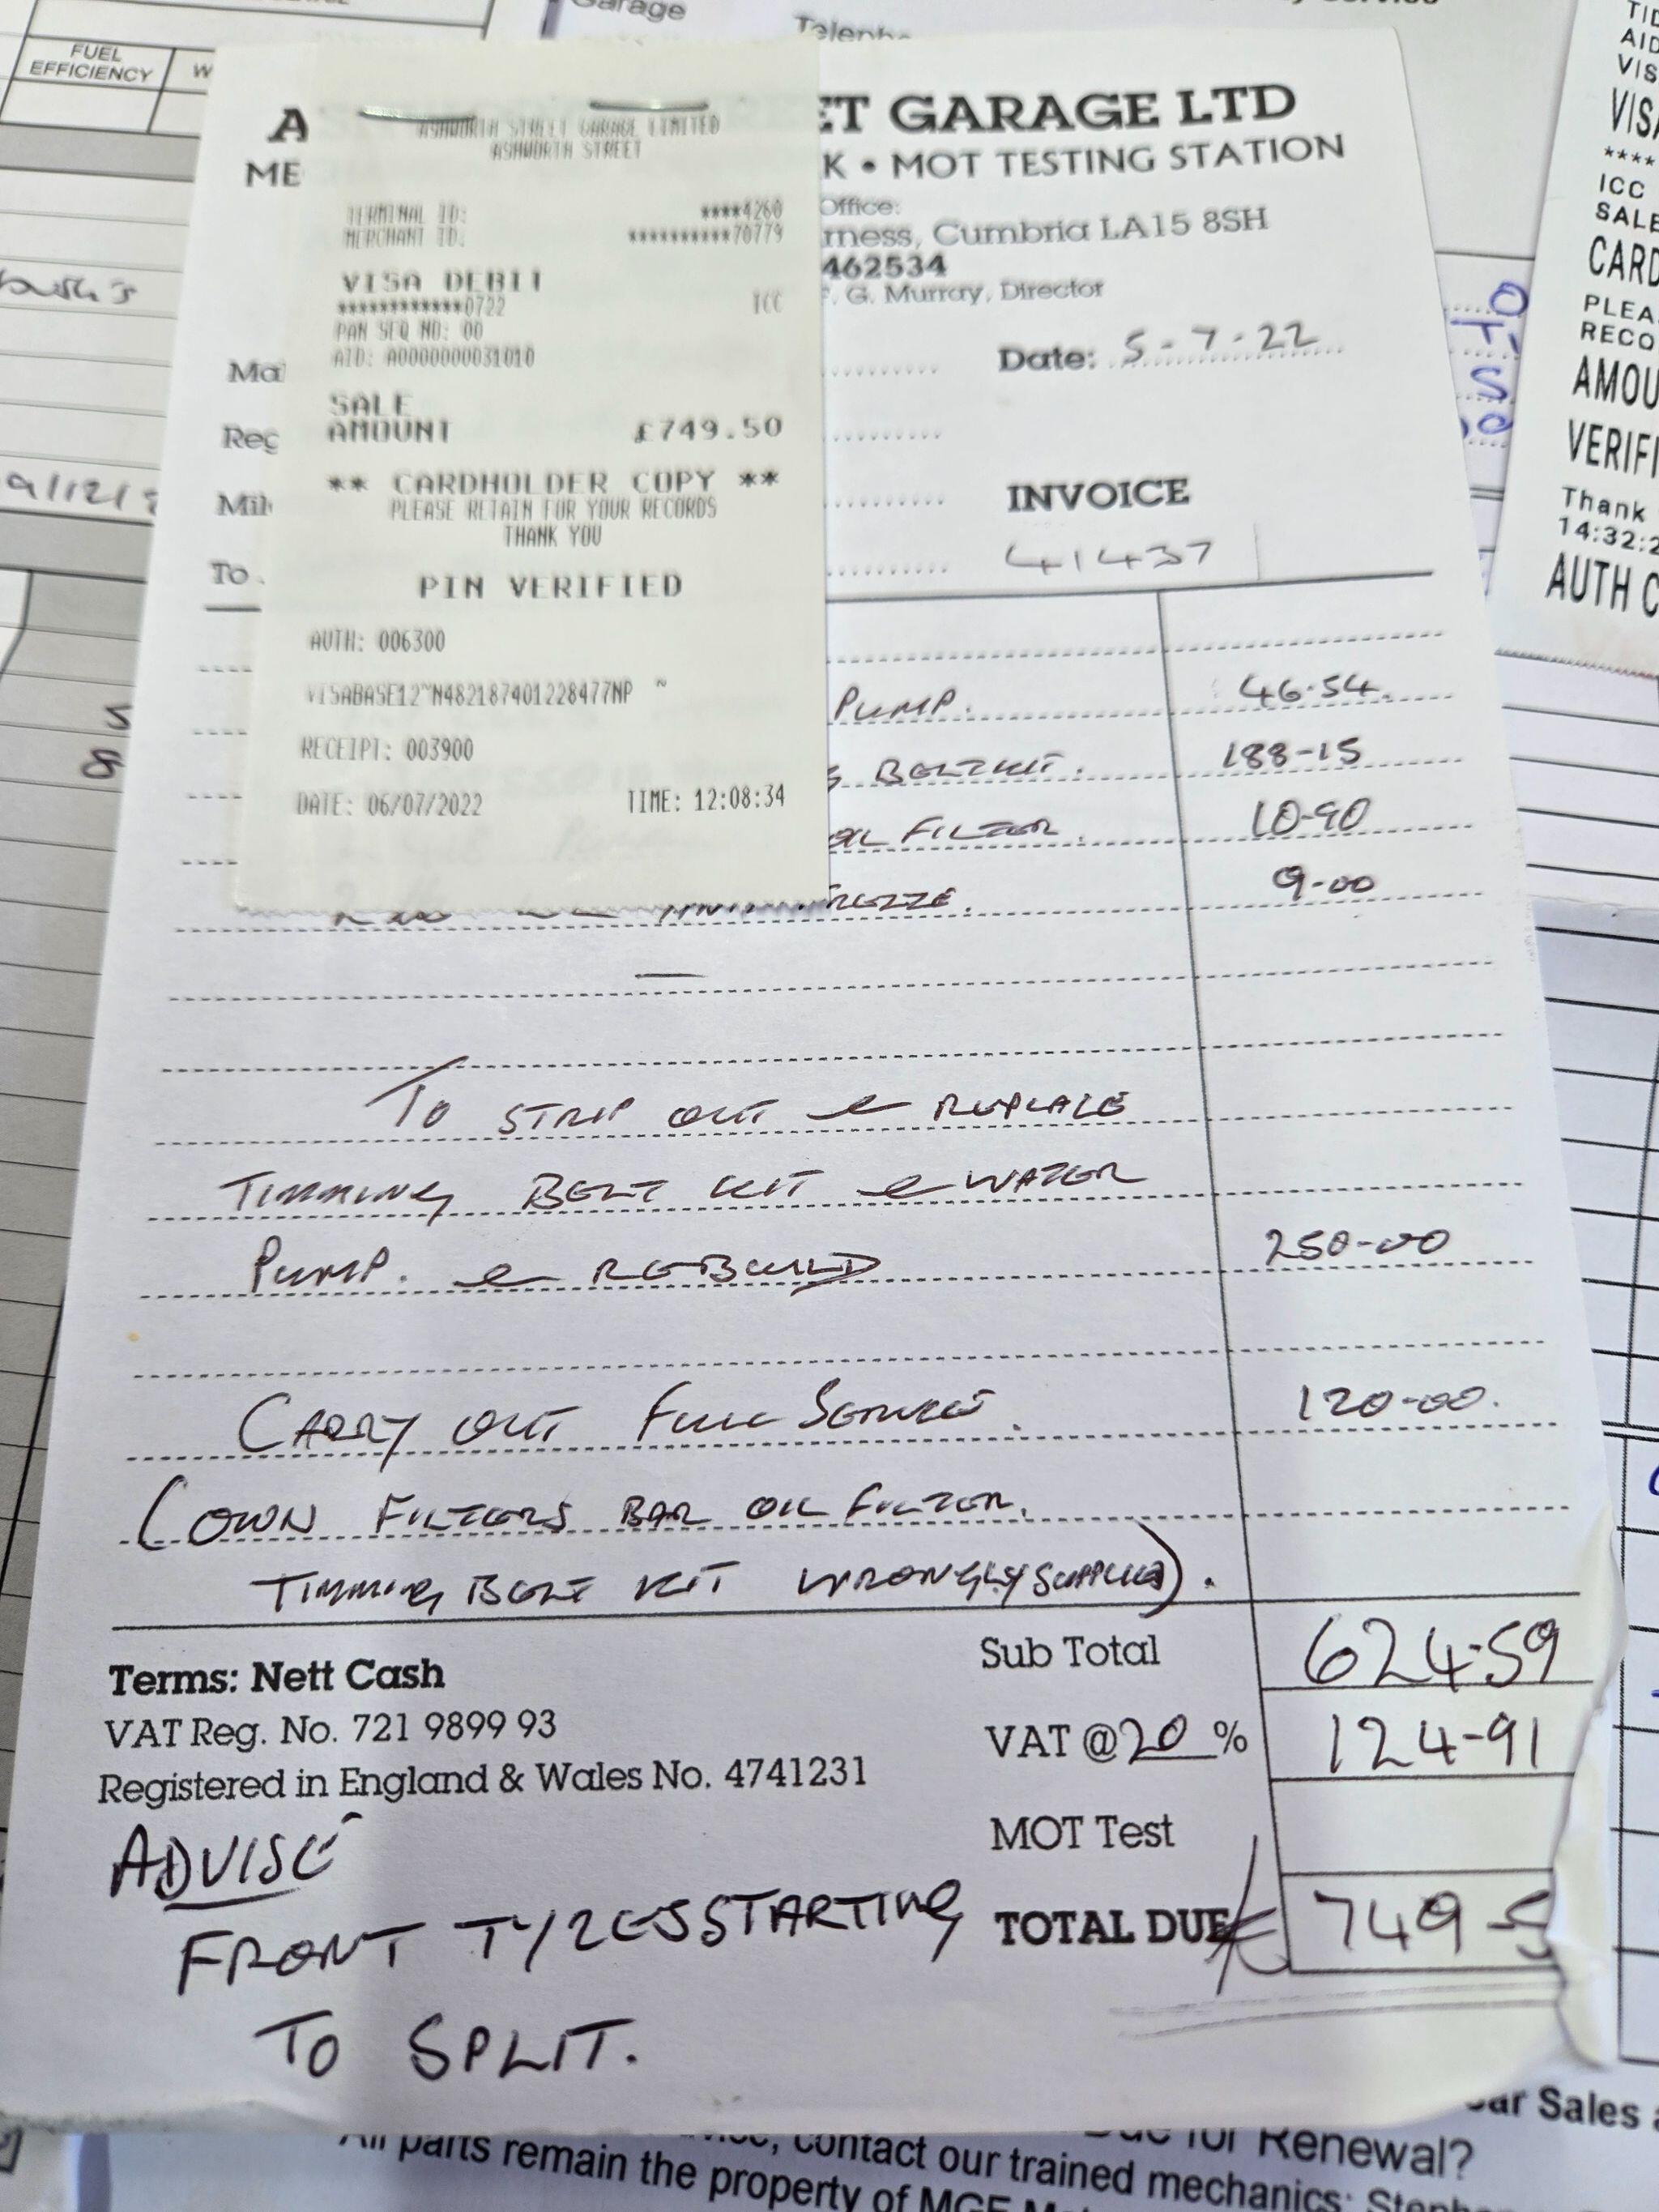 Garage
FUEL
EFFICIENCY
A
ET GARAGE LTD
ME
K • MOT TESTING STATION
Office:
rness, Cumbria LA15 8SH
462534
F. G. Murray, Director
Date: 5-7-22
Mak
Reg
Mil
To
INVOICE
41437
ASHWORTH STREET GARAGE LIMITED
ASHWORTH STREET
TERMINAL ID: ****4260
MERCHANT ID: **********70779
VISA DEBIT
************0722 ICC
PAN SEQ NO: 00
AID: A0000000031010
SALE
AMOUNT £749.50
** CARDHOLDER COPY **
PLEASE RETAIN FOR YOUR RECORDS
THANK YOU
PIN VERIFIED
AUTH: 006300
VISABASE12~N482187401228477NP ~
RECEIPT: 003900
DATE: 06/07/2022 TIME: 12:08:34
PUMP. 46.54
BELT KIT. 188-15
OIL FILTER. 10-90
9-00
TO STRIP OUT & REPLACE
TIMMING BELT KIT & WATER
PUMP. & REBUILD 250-00
CARRY OUT FULL SERVICE. 120-00.
(OWN FILTERS BAR OIL FILTER.
TIMMING BELT KIT WRONGLY SUPPLIED).
Terms: Nett Cash
VAT Reg. No. 721 9899 93
Registered in England & Wales No. 4741231
Sub Total 624-59
VAT @ 20 % 124-91
MOT Test
TOTAL DUE £ 749-5
ADVISE
FRONT TYRES STARTING
TO SPLIT.
TID
AID
VIS
VISA
****
ICC
SALE
CARD
PLEA
RECO
AMOU
VERIFI
Thank
14:32:2
AUTH C
ar Sales
Due for Renewal?
, contact our trained mechanics: Steph
All parts remain the property of MGF